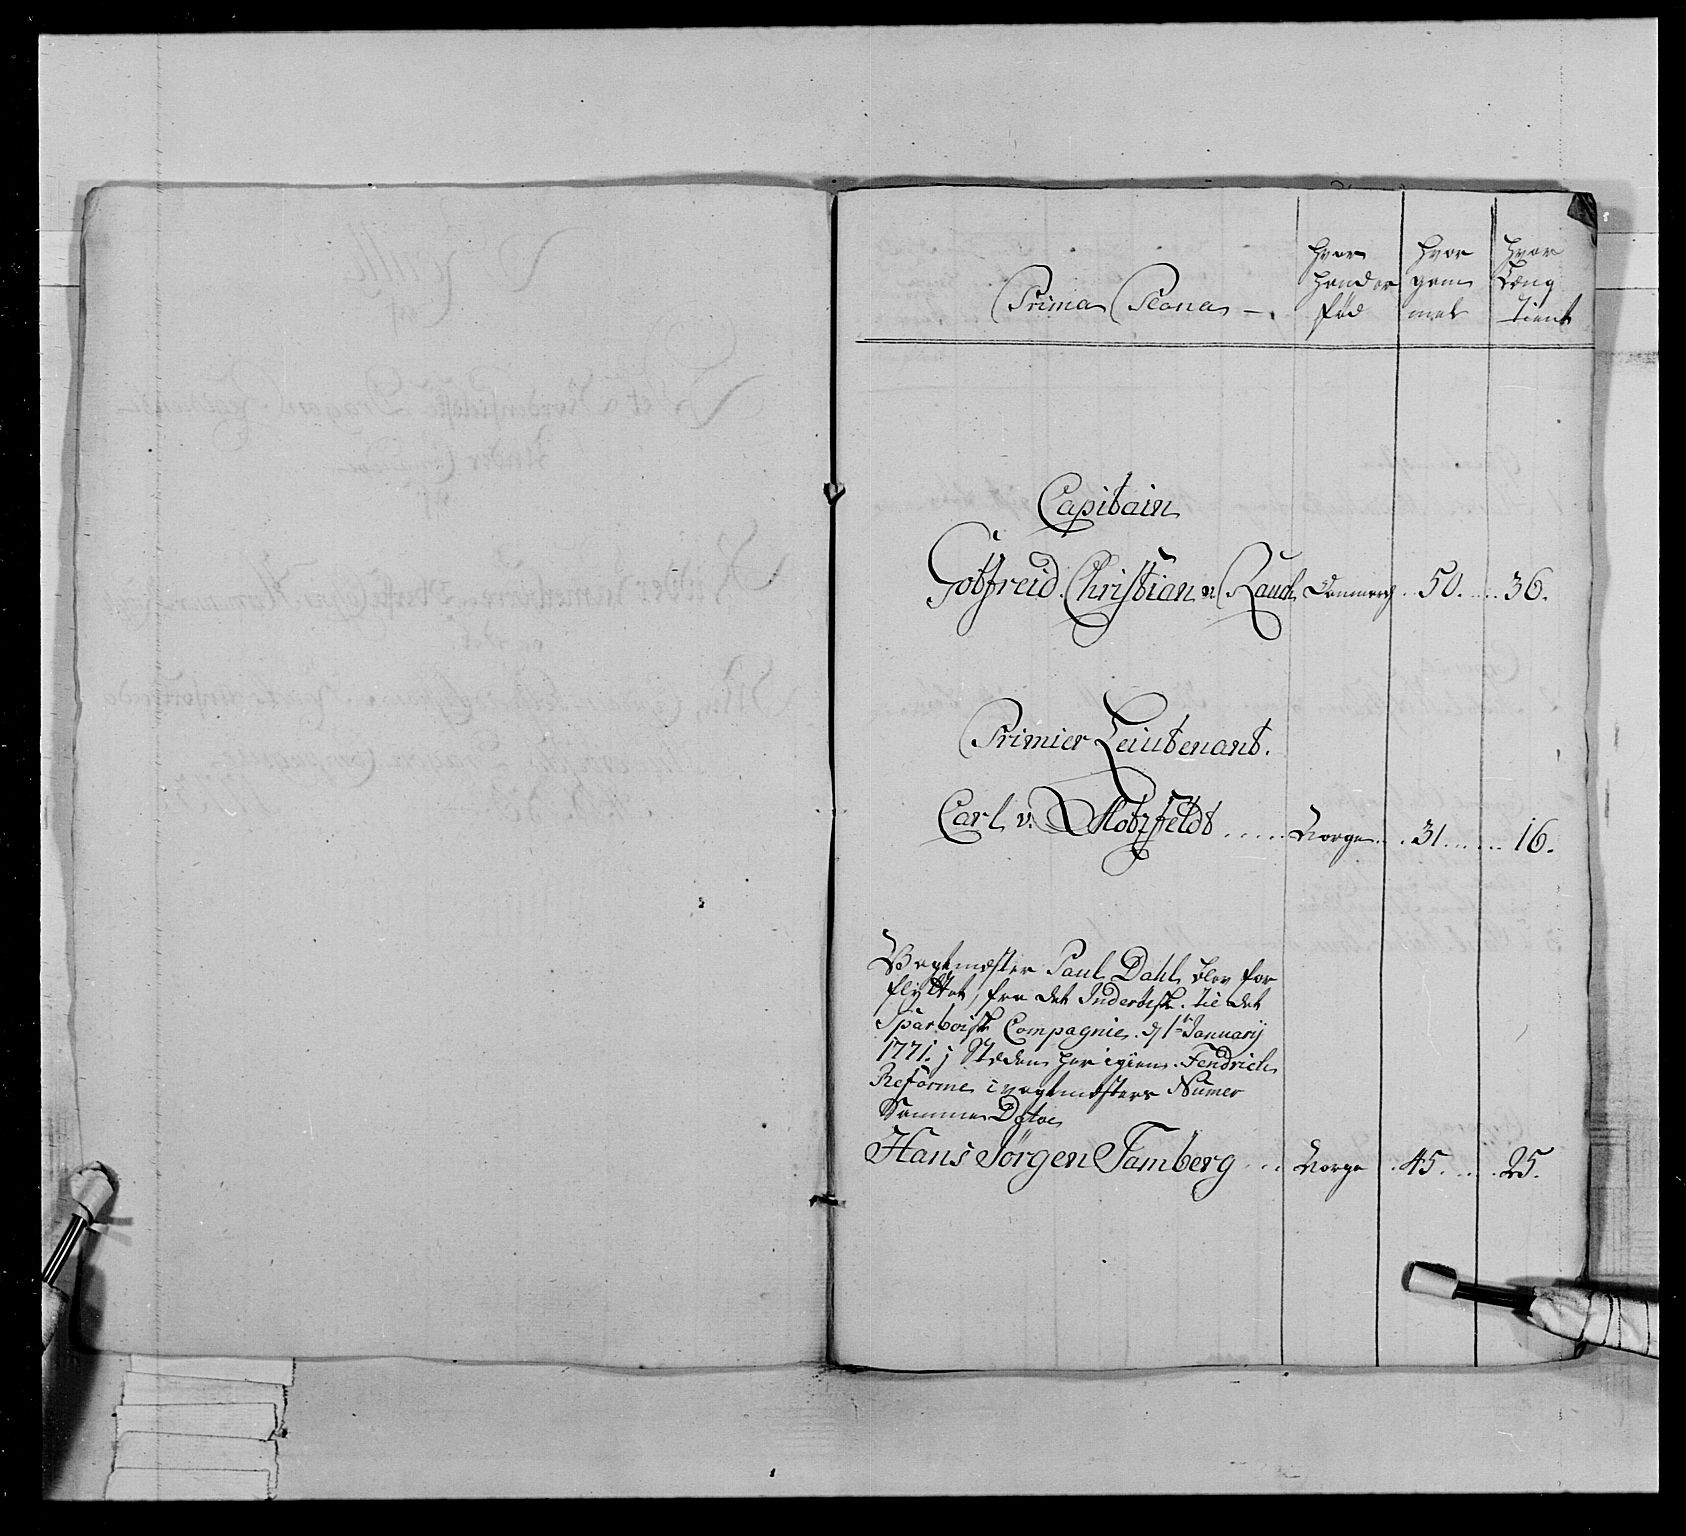 Prima Plana —.
Hvor
hander
Fød
Hvor
gam
mel
Hvor
Læng
tient
Capitain
Gotfreid Christian v. Rauch Danmarch .. 50. .... 36.
Primier Leiutenant.
Carl v. Motzfeldt ..... Norge ... 31 ..... 16.
Vagtmæster Paul Dahl blev for
flÿttet, fra det Inderøisk. til det
Sparboisk Compagnie. d. 1te Januarij
1771. j Stæden her igien. Fendrich
Reforme i vagtmæsters Numer
Samme Dato
Hans Jørgen Tamberg ... Norge . 45. .... 25.